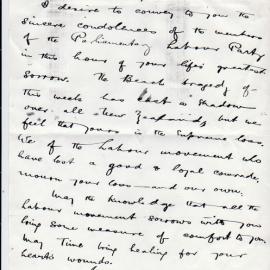 I desire to convey to you the
sincere condolences of the members
of the Parliamentary Labour Party
in this hour of your life's greatest
sorrow. The Beach tragedy of
this weeks has cast a shadow
over all New Zealanders but we
feel that yours is the Supreme loss.
We of the Labour movement who
have lost a good & loyal comrade,
mourn your loss — and our own.
May the knowledge that all the
Labour movement sorrows with you
bring some measure of comfort to you.
May Time bring healing for your
heart's wounds.